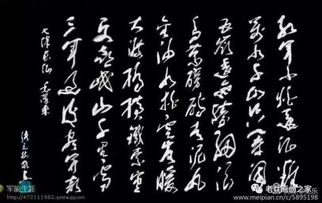 红军不怕远征难
万水千山只等闲
五岭逶迤腾细浪
乌蒙磅礴走泥丸
金沙水拍云崖暖
大渡桥横铁索寒
更喜岷山千里雪
三军过后尽开颜
七律长征 毛泽东
www.meipian.cn/c/5895198